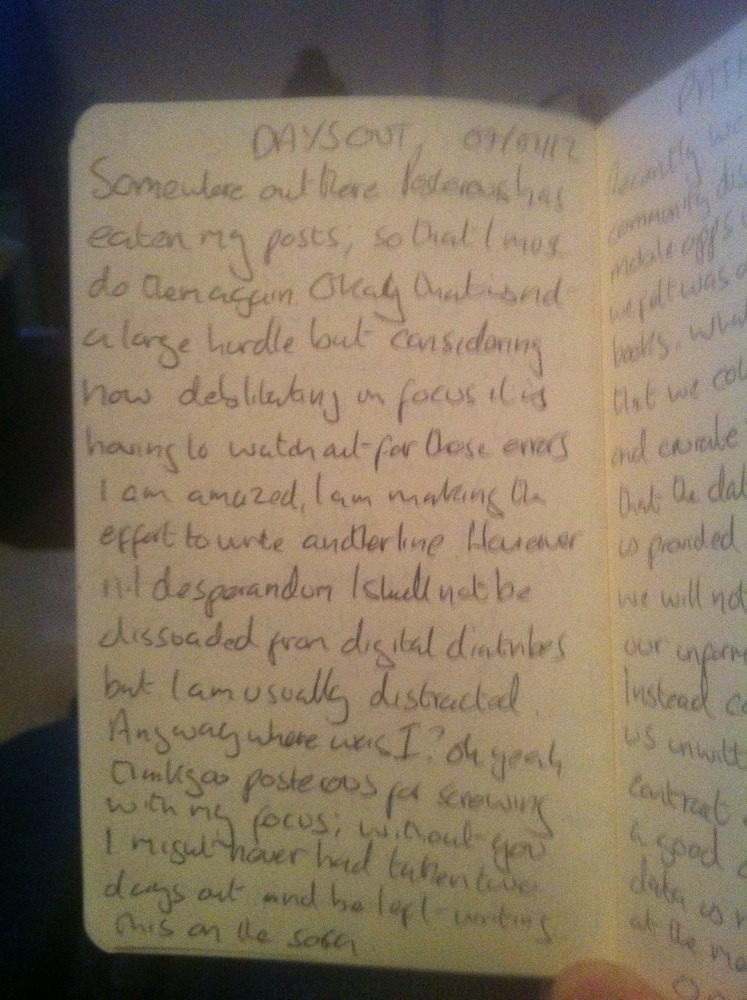 DAYS OUT, 09/01/12
Somewhere out there Posterous has
eaten my posts; so that I mus
do them again. Okay that is not
a large hurdle but considering
how debilitating in focus it is
having to watch out for those errors
I am amazed, I am making the
effort to write another line. However
nil desparandom I shall not be
dissoaded from digital diatribes
but I am usually distracted.
Anyway where was I? oh yeah
thank you posterous for screwing
with my focus; without you
I might never had taken two
days out and be left writing
this on the sofa
Recently we
community dis
mobile apps
we felt was a
books. Wha
that we col
and curate
that the dat
is provided
we will not
our inform
Instead co
us unwitt
contract
a good
data is
at the mo